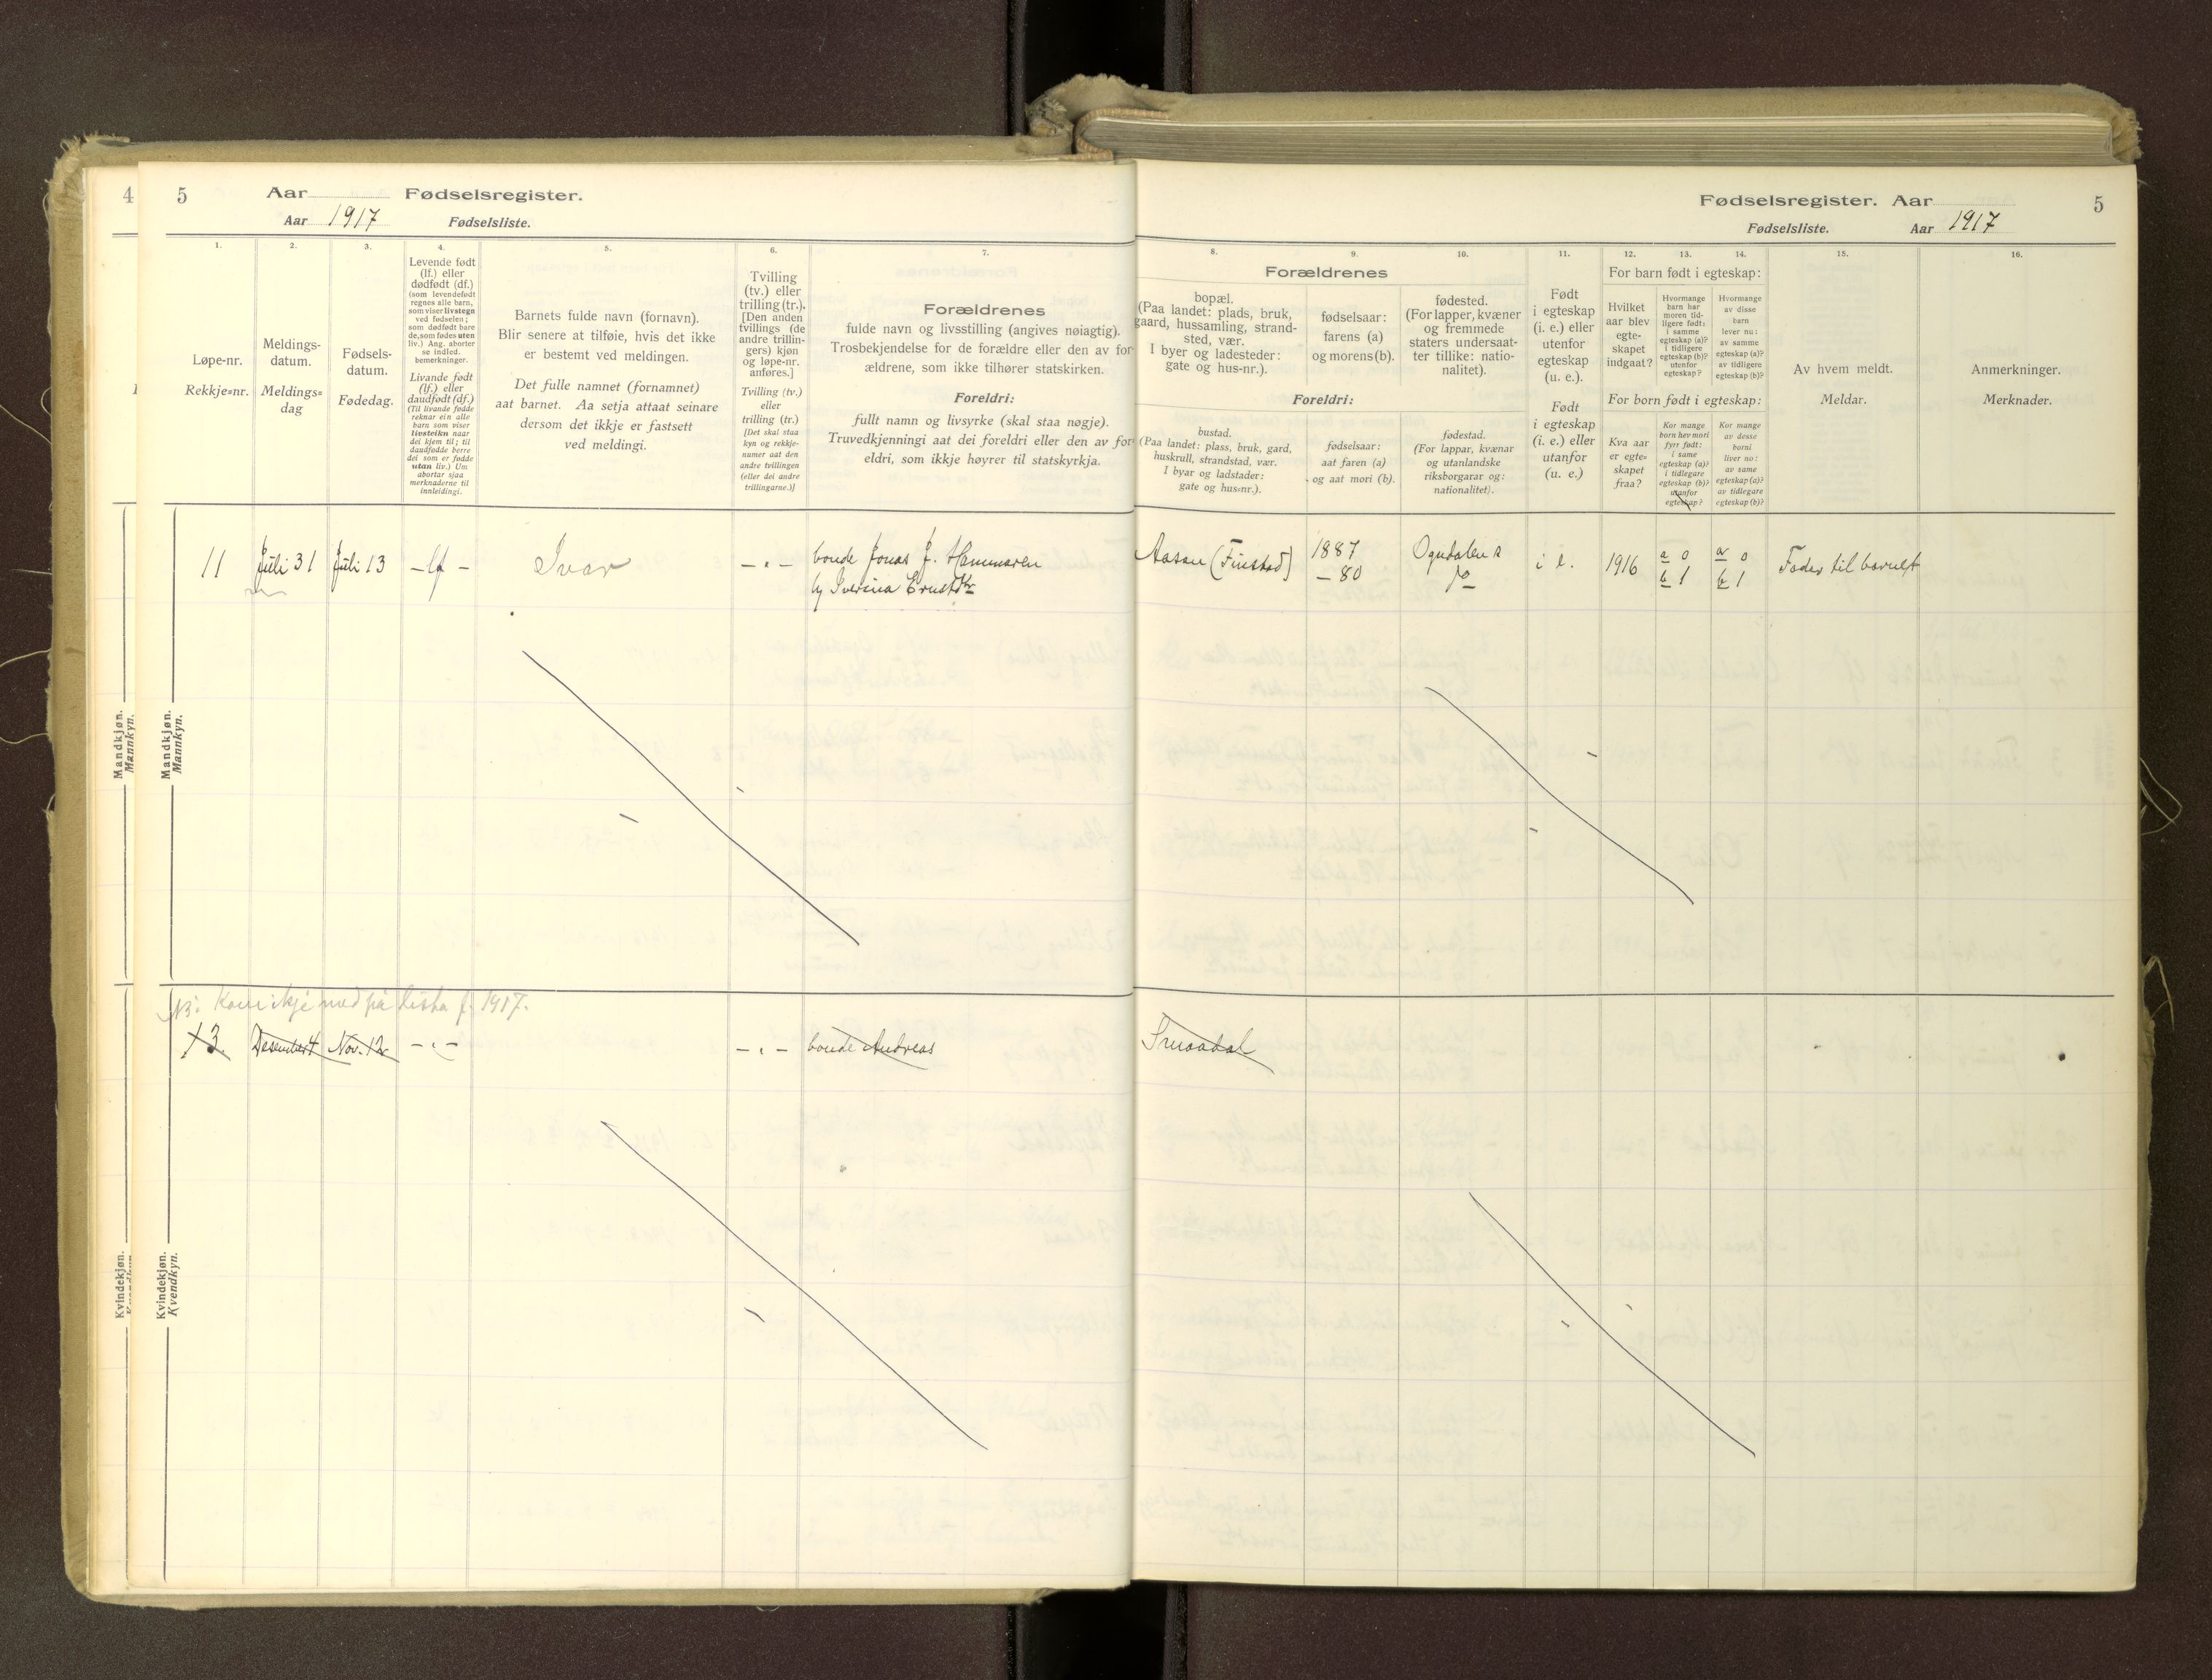 4
5
Aar
Fødselsregister.
Aar 1917
Fødselsliste.
Fødselsregister. Aar
5
Fødselsliste.
Aar 1917
1.
Løpe-nr.
Rekkje=nr.
2.
Meldings-
datum.
Meldings=
dag
3.
Fødsels-
datum.
Fødedag.
4.
Levende født
(lf.) eller
dødfødt (df.)
(som levendefødt
regnes alle barn,
som viser livstegn
ved fødselen;
som dødfødt bare
de, som fødes uten
liv.) Ang. aborter
se indled.
bemerkninger.
Livande født
(lf.) eller
daudfødt (df.)
(Til livande fødde
reknar ein alle
barn som viser
livsteikn naar
dei kjem til; til
daudfødde berre
dei som er fødde
utan liv.) Um
abortar sjaa
merknaderne til
innleidingi.
5.
Barnets fulde navn (fornavn).
Blir senere at tilføie, hvis det ikke
er bestemt ved meldingen.
Det fulle namnet (fornamnet)
aat barnet. Aa setja attaat seinare
dersom det ikkje er fastsett
ved meldingi.
6.
Tvilling
(tv.) eller
trilling (tr.).
[Den anden
tvillings (de
andre trillin-
gers) kjøn
og løpe-nr.
anføres.]
Tvilling (tv.)
eller
trilling (tr.)
[Det skal staa
kyn og rekkje-
numer aat den
andre tvillingen
(eller dei andre
trillingarne.)]
7.
Forældrenes
fulde navn og livsstilling (angives nøiagtig).
Trosbekjendelse for de forældre eller den av for-
ældrene, som ikke tilhører statskirken.
Foreldri:
fullt namn og livsyrke (skal staa nøgje).
Truvedkjenningi aat dei foreldri eller den av for-
eldri, som ikkje høyrer til statskyrkja.
Forældrenes
8.
bopæl.
(Paa landet: plads, bruk,
gaard, hussamling, strand-
sted, vær.
I byer og ladesteder:
gate og hus-nr.).
9.
fødselsaar:
farens (a)
og morens (b).
10.
fødested.
(For lapper, kvæner
og fremmede
staters undersaat-
ter tillike: natio-
nalitet).
Foreldri:
bustad.
(Paa landet: plass, bruk, gard,
huskrull, strandstad, vær.
I byar og ladstader:
gate og hus=nr.).
fødselsaar:
aat faren (a)
og aat mori (b).
fødestad.
(For lappar, kvænar
og utanlandske
riksborgarar og:
nationalitet).
11.
Født
i egteskap
(i. e.) eller
utenfor
egteskap
(u. e.).
Født
i egteskap
(i. e.) eller
utanfor
(u. e.)
For barn født i egteskap:
12.
Hvilket
aar blev
egte-
skapet
indgaat?
13.
Hvormange
barn har
moren tid-
ligere født:
i samme
egteskap (a)?
i tidligere
egteskap (b)?
utenfor
egteskap?
14.
Hvormange
av disse
barn
lever nu:
av samme
egteskap (a)?
av tidligere
egteskap (b)?
For born født i egteskap:
Kva aar
er egte=
skapet
fraa?
Kor mange
born hev mori
fyrr født:
i same
egteskap (a)?
i tidlegare
egteskap (b)?
utanfor
egteskap?
Kor mange
av desse
borni
liver no:
av same
egteskap (a)?
av tidlegare
egteskap (b)?
15.
Av hvem meldt.
Meldar.
16.
Anmerkninger.
Merknader.
Mandkjøn.
Mannkyn.
Mandkjøn.
Mannkyn.
11 Juli 31 Juli 13 - lf - Ivar - " - bonde Jonas J. Hammeren Aasen (Finstad) 1887 Ogndalen i e. 1916 a 0 a 0 Fader til barnet
Iversina - 80 b 1 b 1
Kvindekjøn.
Kvendkyn.
Kvindekjøn.
Kvendkyn.
NB: Kom ikje med på lista f. 1917.
13. Desember 4 Nov. 12 - " - - " - bonde Andreas Smaadal